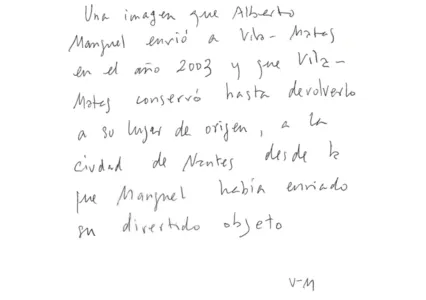 Una imagen que Alberto
Manguel envió a Vila-Matas
en el año 2003 y que Vila-
Matas conservó hasta devolverlo
a su lugar de origen, a la
ciudad de Nantes desde la
que Manguel había enviado
su divertido objeto
V-M